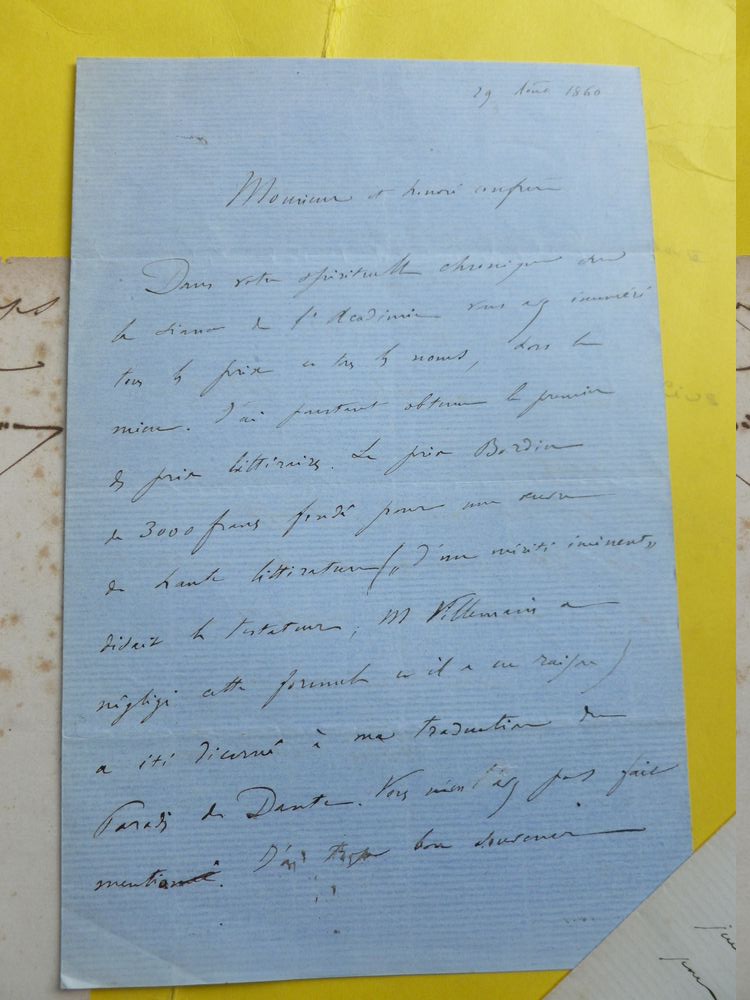 29 Août 1860
Monsieur et honoré confrère
Dans votre spirituelle chronique sur
la séance de l'Académie vous avez énuméré
tous les prix et tous les noms, hors le
mien. J'ai pourtant obtenu le premier
des prix littéraires. Le prix Bordin
de 3000 francs fondé pour une œuvre
de haute littérature („ d'un mérite éminent „
disait le testateur; M Villemain a
négligé cette formule et il a eu raison)
a été décerné à ma traduction du
Paradis de Dante. Vous n'en avez pas fait
mention. J'ai trop bon souvenir